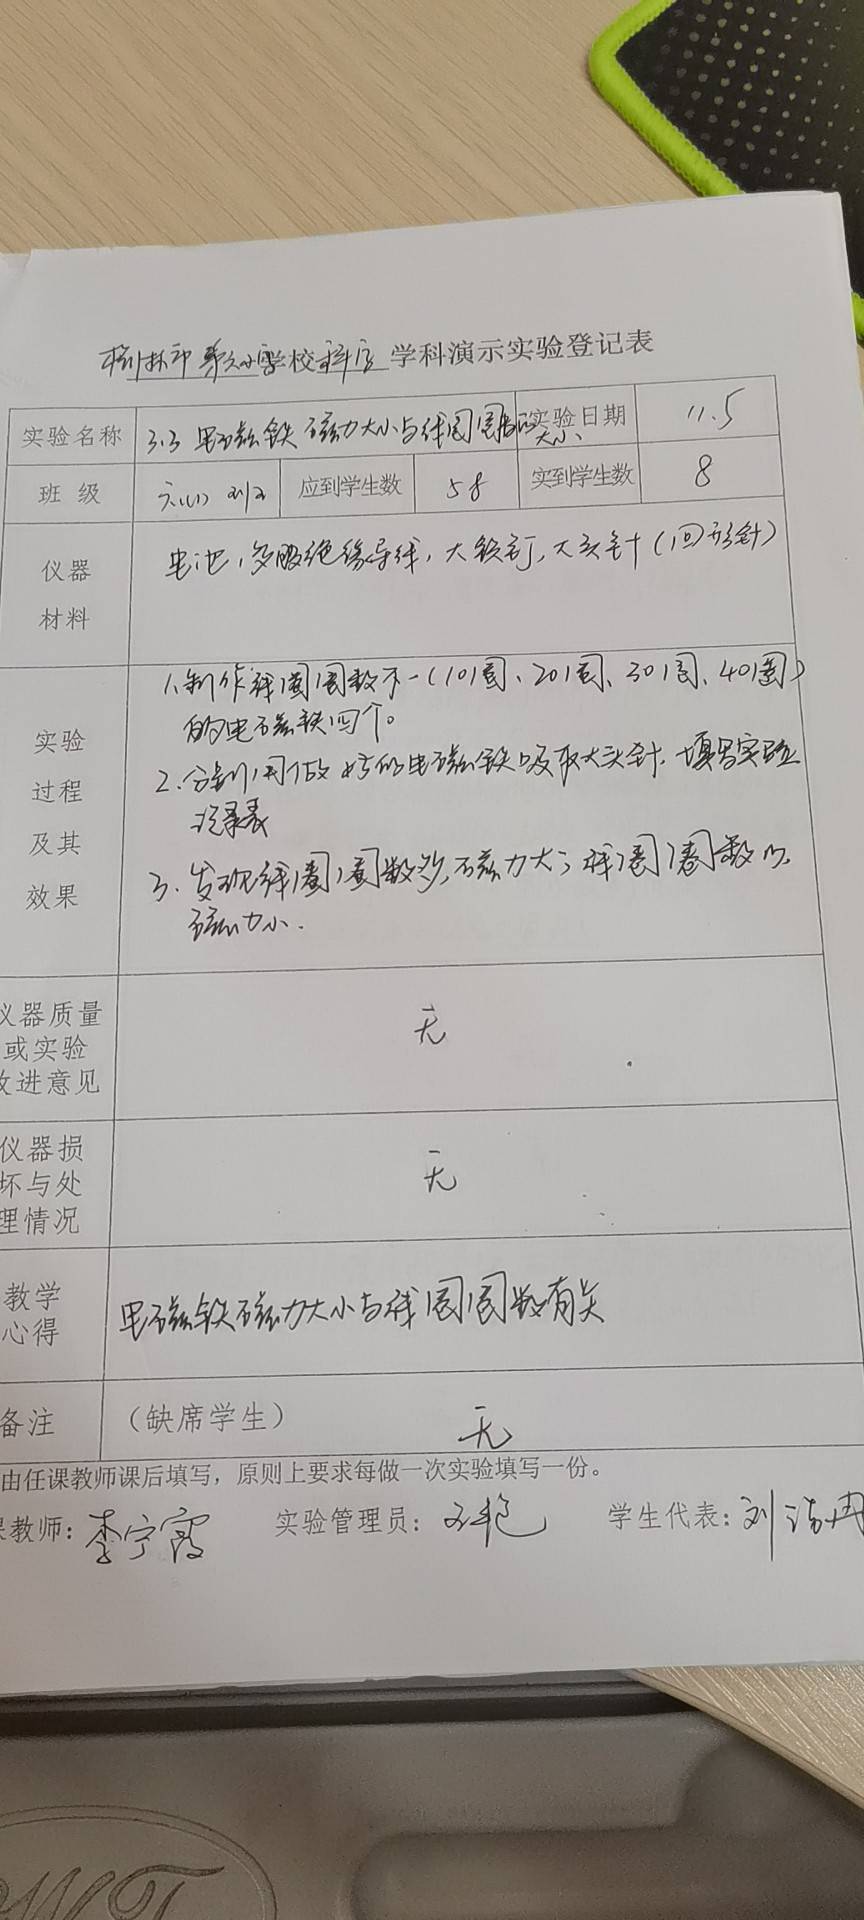 榆林市第六小学校科学学科演示实验登记表
实验名称 3.3 电磁铁磁力大小与线圈圈数 大小 实验日期 11.5
班 级 应到学生数 58 实到学生数 8
仪器 材料 电池，多股绝缘导线，大铁钉，大头针（回形针）
实验 过程 及其 效果
1、制作线圈圈数不一（10圈、20圈、30圈、40圈）
的电磁铁四个。
2、分别用做好的电磁铁吸取大头针，填写实验
记录表
3、发现线圈圈数多，磁力大；线圈圈数少，
磁力小．
仪器质量 或实验 改进意见 无
仪器损 坏与处 理情况 无
教学 心得 电磁铁磁力大小与线圈圈数有关
备注 （缺席学生） 无
由任课教师课后填写，原则上要求每做一次实验填写一份。
课教师：李宁霞 实验管理员： 学生代表：刘